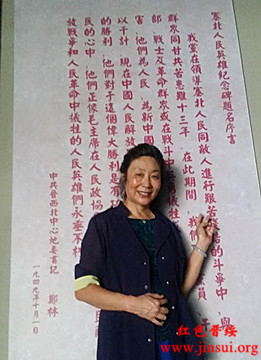 塞北人民英雄紀念碑題名序言
我党在領導塞北人民同敵人進行艱苦 的斗爭中，與
群众同甘共苦患難十三年，在此期間，我們 委員
部、戰士及革命群众或在戰斗中
害，他們為人民，為新中
以千計，現在中國人民解放
利，他們對于這個偉大勝利是有
民的心中，他們正像毛主席在人民政協
放戰爭和人民革命中犧牲的人民英雄們永垂不朽
中共晉西北中心地委書記 鄭林
一九四九年十月一日
红色晋绥
www.jinsui.org